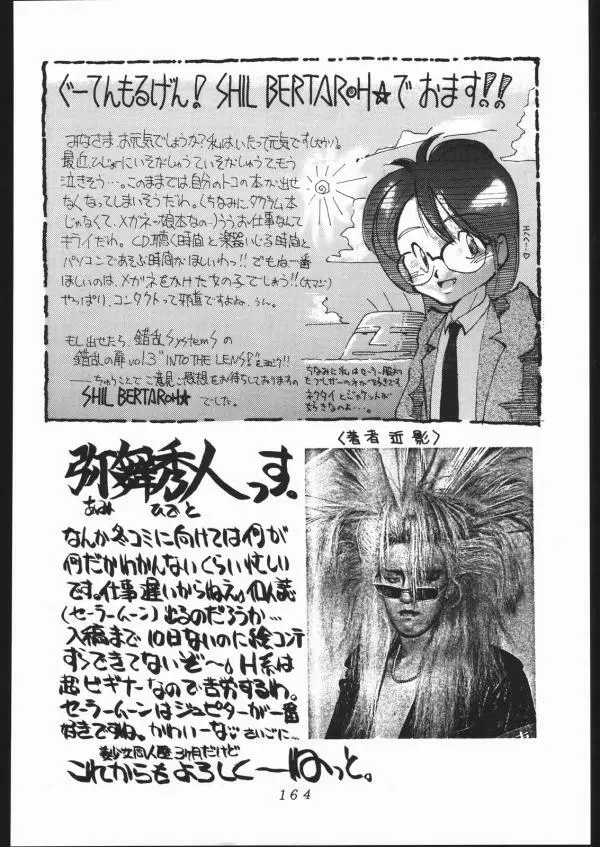 ぐーてんもるげん! SHIL BERTAROH☆でおます!!
みなさまお元気でしょうか?私はいたって元気です(大ウソ)。
最近、ひじょーにいそがしゅうていそがしゅうて、もう
泣きそう…。このままでは自分のトコの本が出せ
なくなってしまいそうだわ。(ちなみに、タカラム本
じゃなくて、メガネっ娘本なの-)うう、お仕事なんて
キライだわ。CD聴く時間と楽器いじる時間と
パソコンであそぶ時間がほしいわっ!!でもね一番
ほしいのは、メガネをかけた女の子でしょう!!(大マジ)
やっぱり、コンタクトって邪道ですよね、うん。
もし出せたら、錯乱SystemSの
錯乱の扉 vol.3 "INTO THE LENS"をヨロシク!!
——ちゅうことでご意見ご感想をお待ちしておりますの
SHIL BERTAROH☆でした。
エヘヘ…♡
ちなみに私はセーラー服
もブレザーの方が好きです
ネクタイとジャケットが
好きなのよ…。
弥舞秀人っす。
あみ ひでと
〈著者近影〉
なんか冬コミに向けては何が
何だかわかんないくらい忙しい
です。仕事遅いからねえ。個人誌
(セーラームーン)出るのだろうか…
入稿まで10日ないのに絵コンテ
すらできてないぞ〜。H系は
超ビギナーなので苦労するわ。
セーラームーンはジュピターが一番
好きですね。かわいーな。さいごに…
美少女同人歴3ヶ月だけど
これからもよろしく〜ねっと。
164